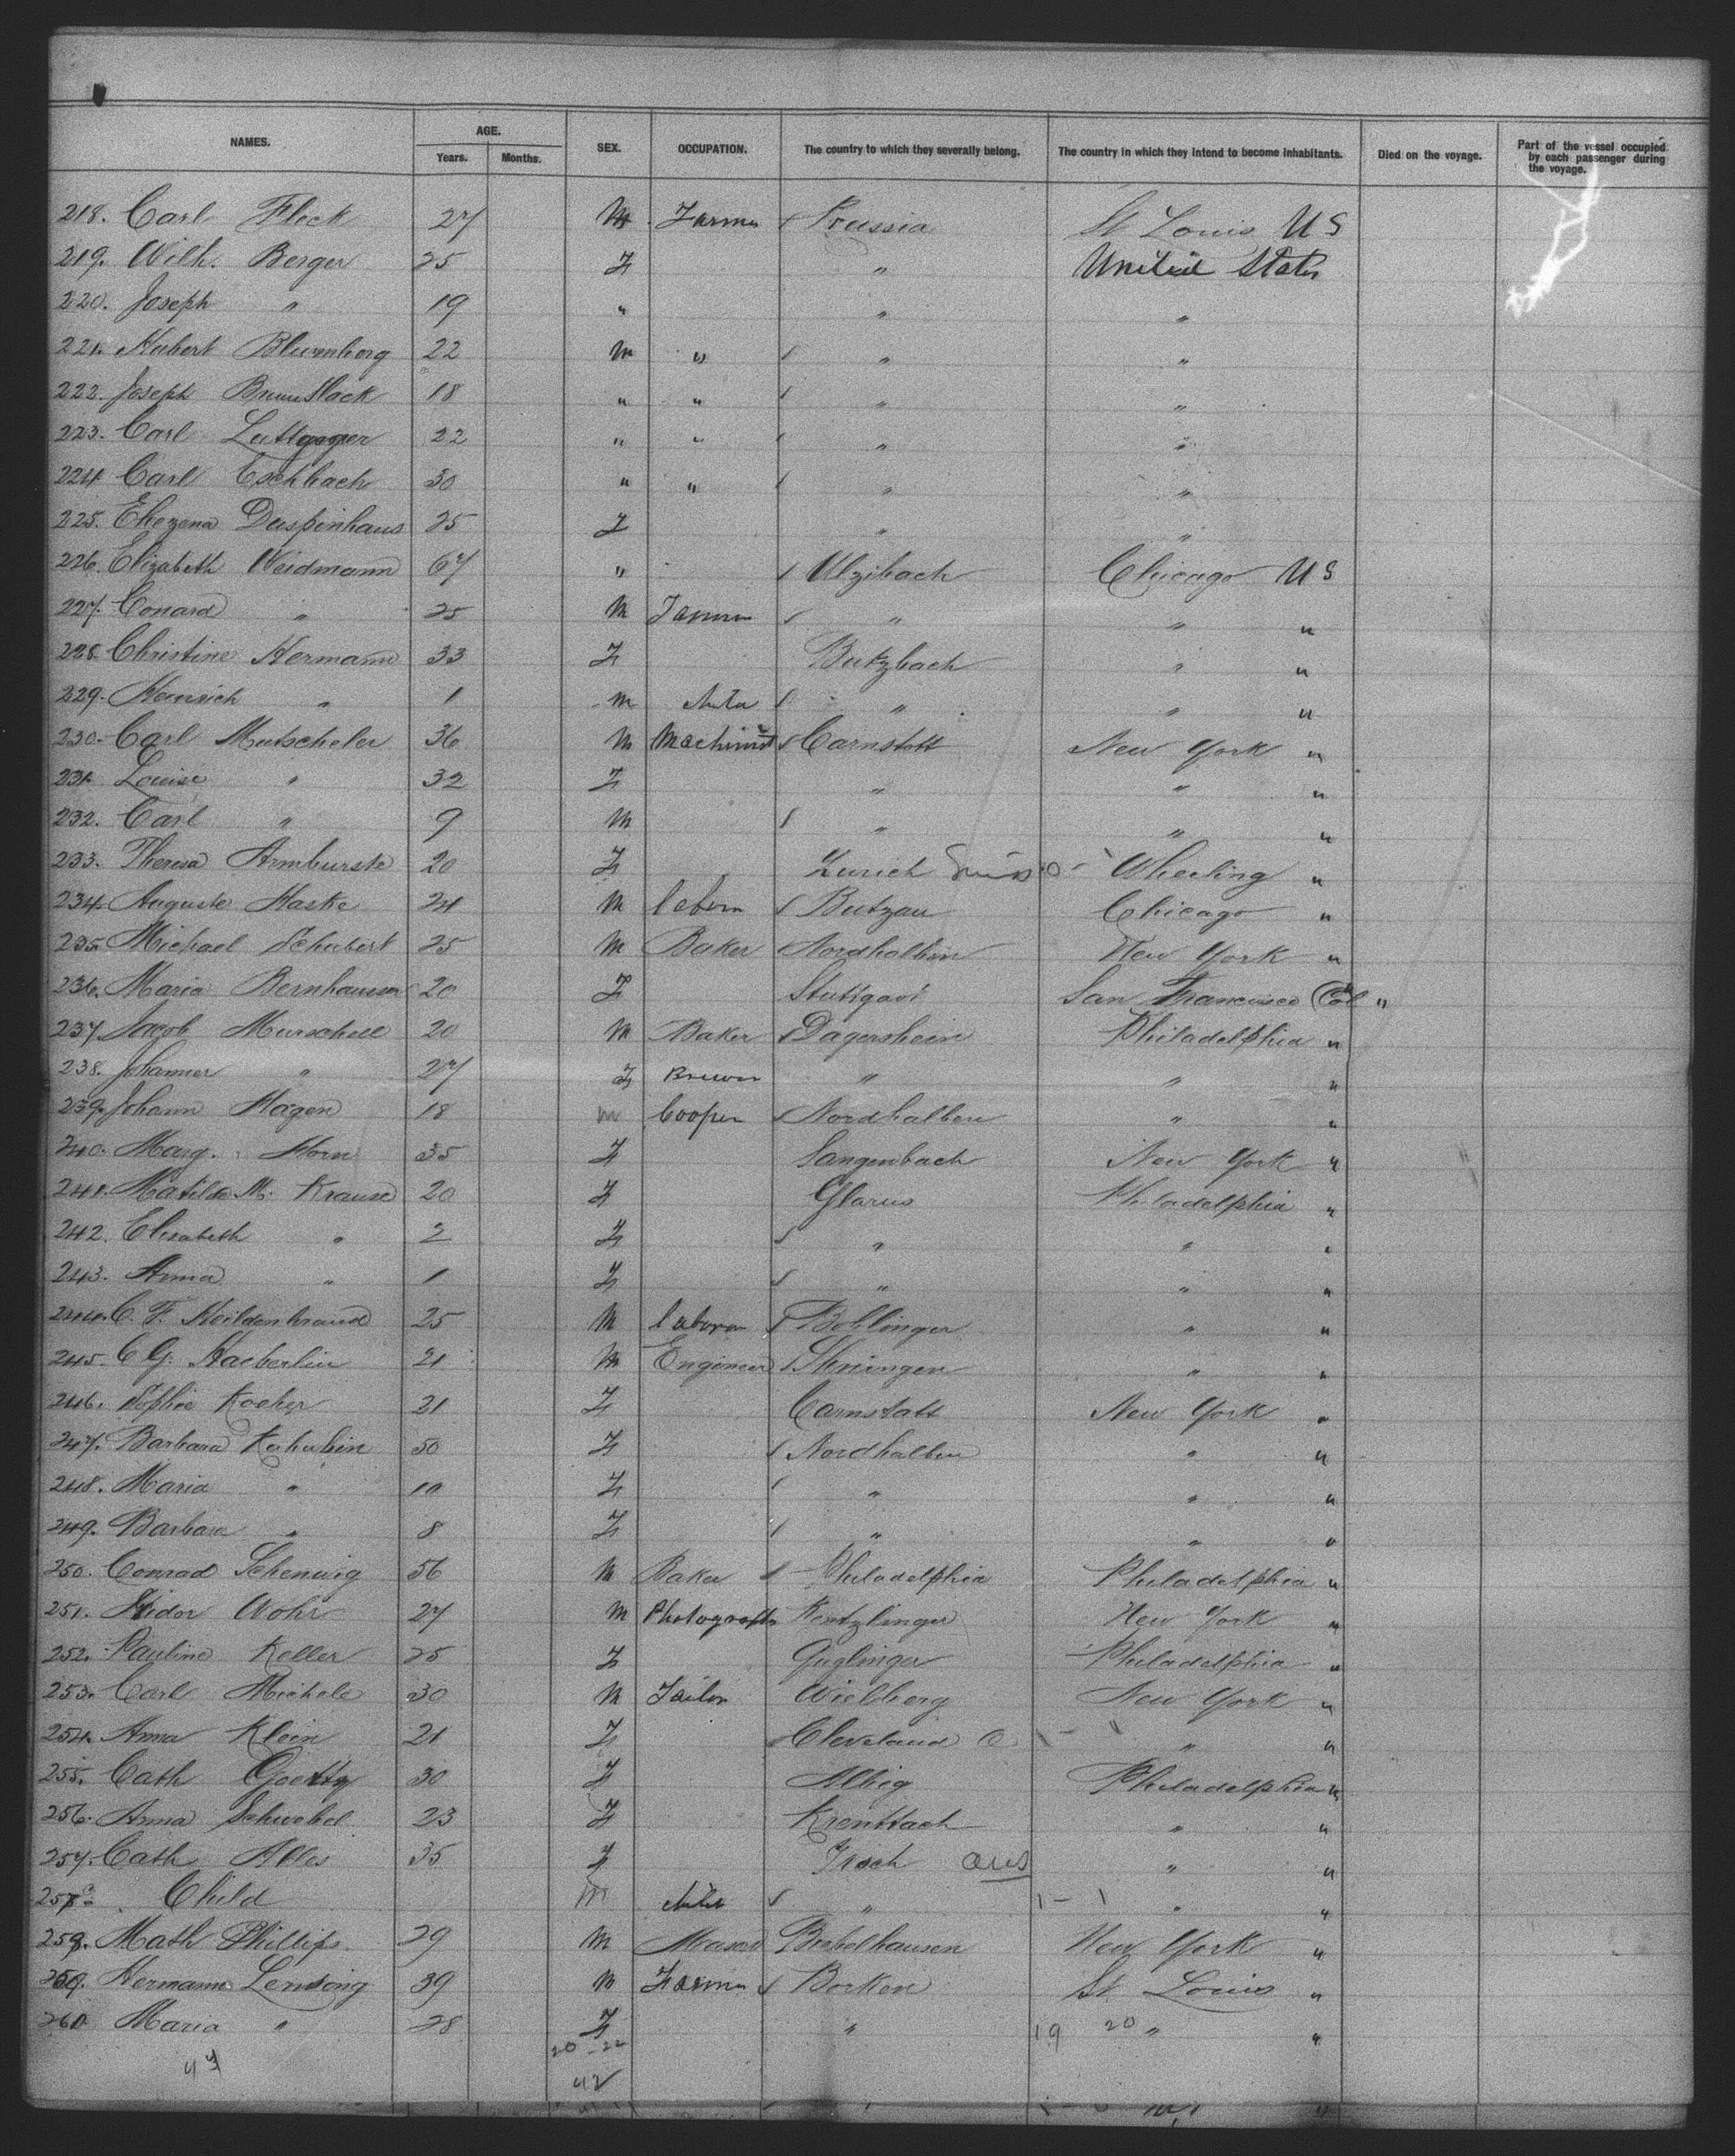 NAMES. AGE. Years. Months. SEX. OCCUPATION. The country to which they severally belong. The country in which they intend to become inhabitants. Died on the voyage. Part of the vessel occupied by each passenger during the voyage.
218. Carl Fleck 27 M Farmer Prussia St Louis US
219. Wilh. Berger 25 F " United States
220. Joseph " 19 " " "
221. Hubert Blumberg 22 M " " "
222. Joseph 18 " " " "
223. Carl 22 " " " "
224. Carl Eschbach 30 " " " "
225. 25 F " "
226. Elizabeth Weidmann 67 " Ulzibach Chicago US
227. Conard " 25 M Farmer " " "
228. Christine Hermann 33 F Butzbach " "
229. Heinrich " 1 M " " "
230. Carl Mutscheler 36 M Machinist Carnstatt New York "
231. Louise " 32 F " " "
232. Carl " 9 M " " "
233. Theresa Armburste 20 F Zurich Wheeling "
234. Auguste Haske 24 M Labore Butzau Chicago "
235. Michael Schubert 25 M Baker Nordhalben New York "
236. Maria Bernhauser 20 F Stuttgart San Francisco Cal "
237. Jacob Murschell 20 M Baker Dagersheim Philadelphia "
238. " 27 F Brewer " " "
239. Johann Hagen 18 m Cooper Nordhalben " "
240. Marg. Horn 35 F Langenbach New York "
241. Matilde M. Krause 20 F Glarus Philadelphia "
242. Elisabeth " 2 F " " "
243. Anna " 1 F " " "
244. C. F. Heildenbrand 25 M Laborer Bohlinger " "
245. C G. Haeberlin 21 M Engineer " "
246. Sophie Kocher 21 F Carnstatt New York "
247. Barbara 50 F Nordhalben " "
248. Maria " 10 F " " "
249. Barbara " 8 F " " "
250. Conrad Schenwig 56 M Baker Philadelphia Philadelphia "
251. Isidor Wohr 27 M Photograph New York "
252. Pauline Keller 25 F Guglinger Philadelphia "
253. Carl Michele 30 M Tailor Wielberg New York "
254. Anna Klein 21 F Cleveland O " "
255. Cath Goetty 30 F Albig Philadelphia "
256. Anna Schwebel 23 F " "
257. Cath Alles 35 F Irsch aus " "
Child m " 1 - 1 " "
259. Math Phillips 29 M Mason Bechelhausen New York "
Hermann Lensing 39 M Farmer Borken St. Louis "
260 Maria " 28 F " 19 20 " "
20 - 22
42